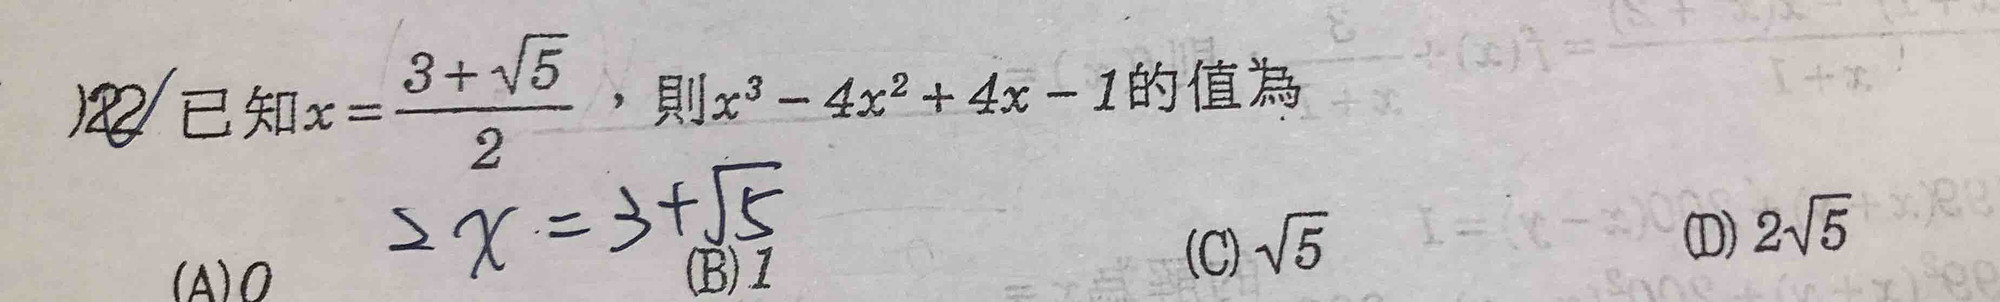 22 已知x=\frac{3+\sqrt{5}}{2},則x³-4x²+4x-1的值為
2x=3+√5
(A)0 (B)1 (C)√5 (D)2√5